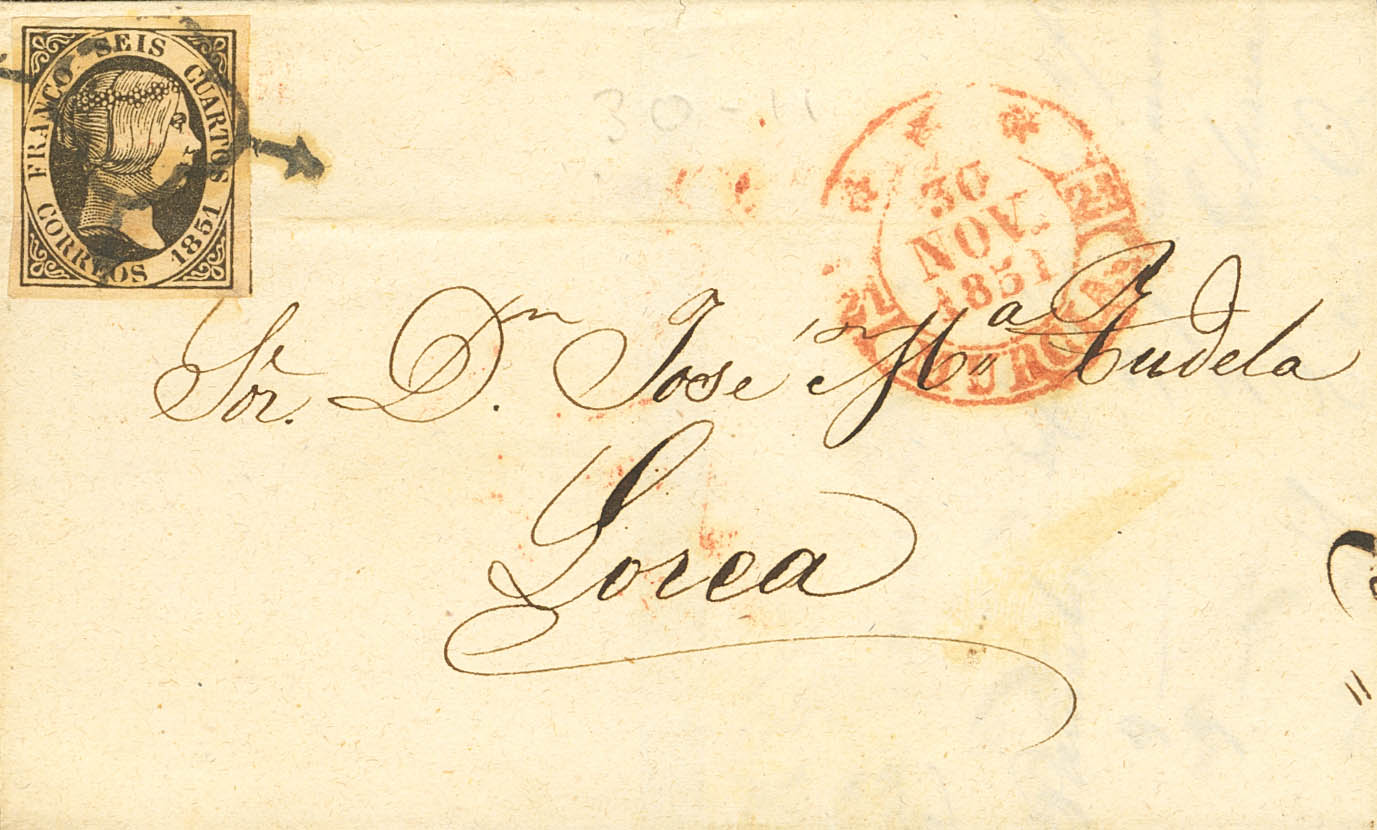 FRANCO SEIS CUARTOS
CORREOS 1851
30-11
30
NOV.
1851
Sor. Dn. José Ma Tudela
Lorca